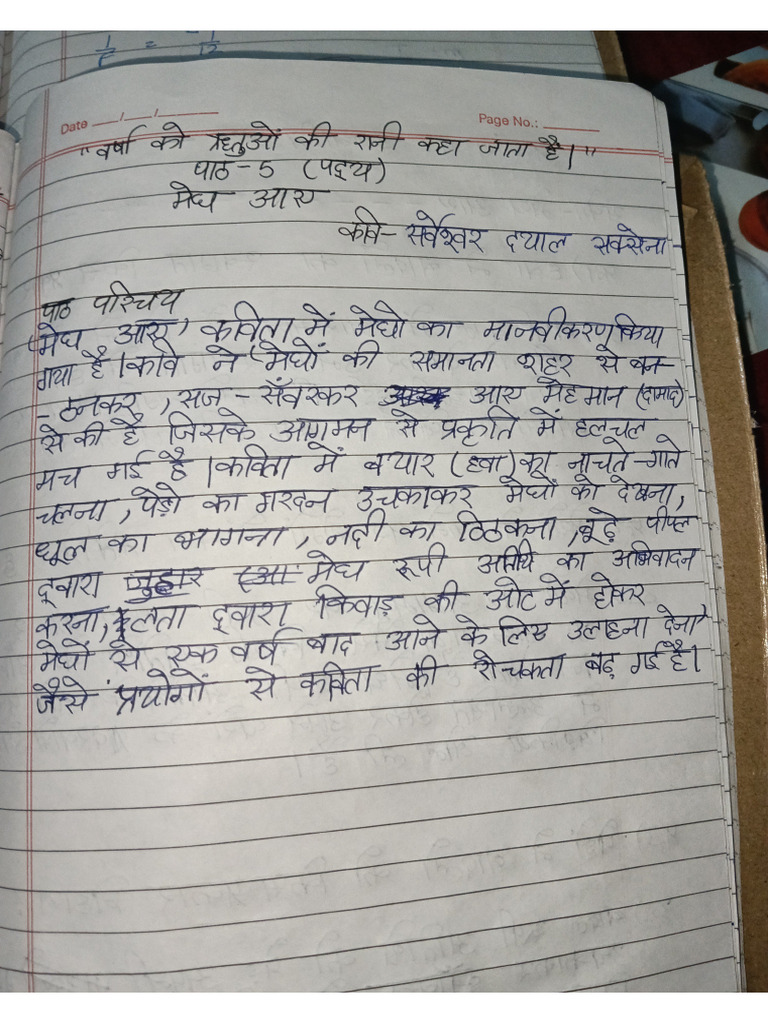 1/5 = -1/12
Date __/__/____ Page No.: ____
"वर्षा को ऋतुओं की रानी कहा जाता है।"
पाठ-5 (पद्य)
मेघ आए
कवि- सर्वेश्वर दयाल सक्सेना-
पाठ परिचय
'मेघ आए' कविता में मेघो का मानवीकरण किया
गया है। कवि ने मेघों की समानता शहर से बन-
-ठनकर, सज-सँवरकर आए मेहमान (दामाद)
से की है जिसके आगमन से प्रकृति में हलचल
मच गई है। कविता में बयार (हवा) का नाचते-गाते
चलना, पेड़ो का गरदन उचकाकर मेघों को देखना,
धूल का भागना, नदी का ठिठकना, बूढ़े पीपल
द्वारा जुहार मेघ रूपी अतिथि का अभिवादन
करना, लता द्वारा किवाड़ की ओट में होकर
मेघों से एक वर्ष बाद आने के लिए उलाहना देना
जैसे प्रयोगों से कविता की रोचकता बढ़ गई है।